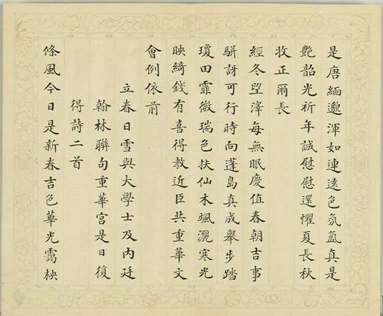 是廑緬邈渾如連遠色氛氳真是
艷韶光祈年誠慰慰還懼夏長秋
收正爾長
經冬望澤每無眠慶值春朝吉事
駢訝可行時向蓬島真成舉步踏
瓊田霏微瑞色扶仙木颯灑寒光
映綺錢有喜得教近臣共重華文
會例依前
立春日雪與大學士及內廷
翰林聯句重華宮是日復
得詩二首
條風今日是新春吉色華光靄柍